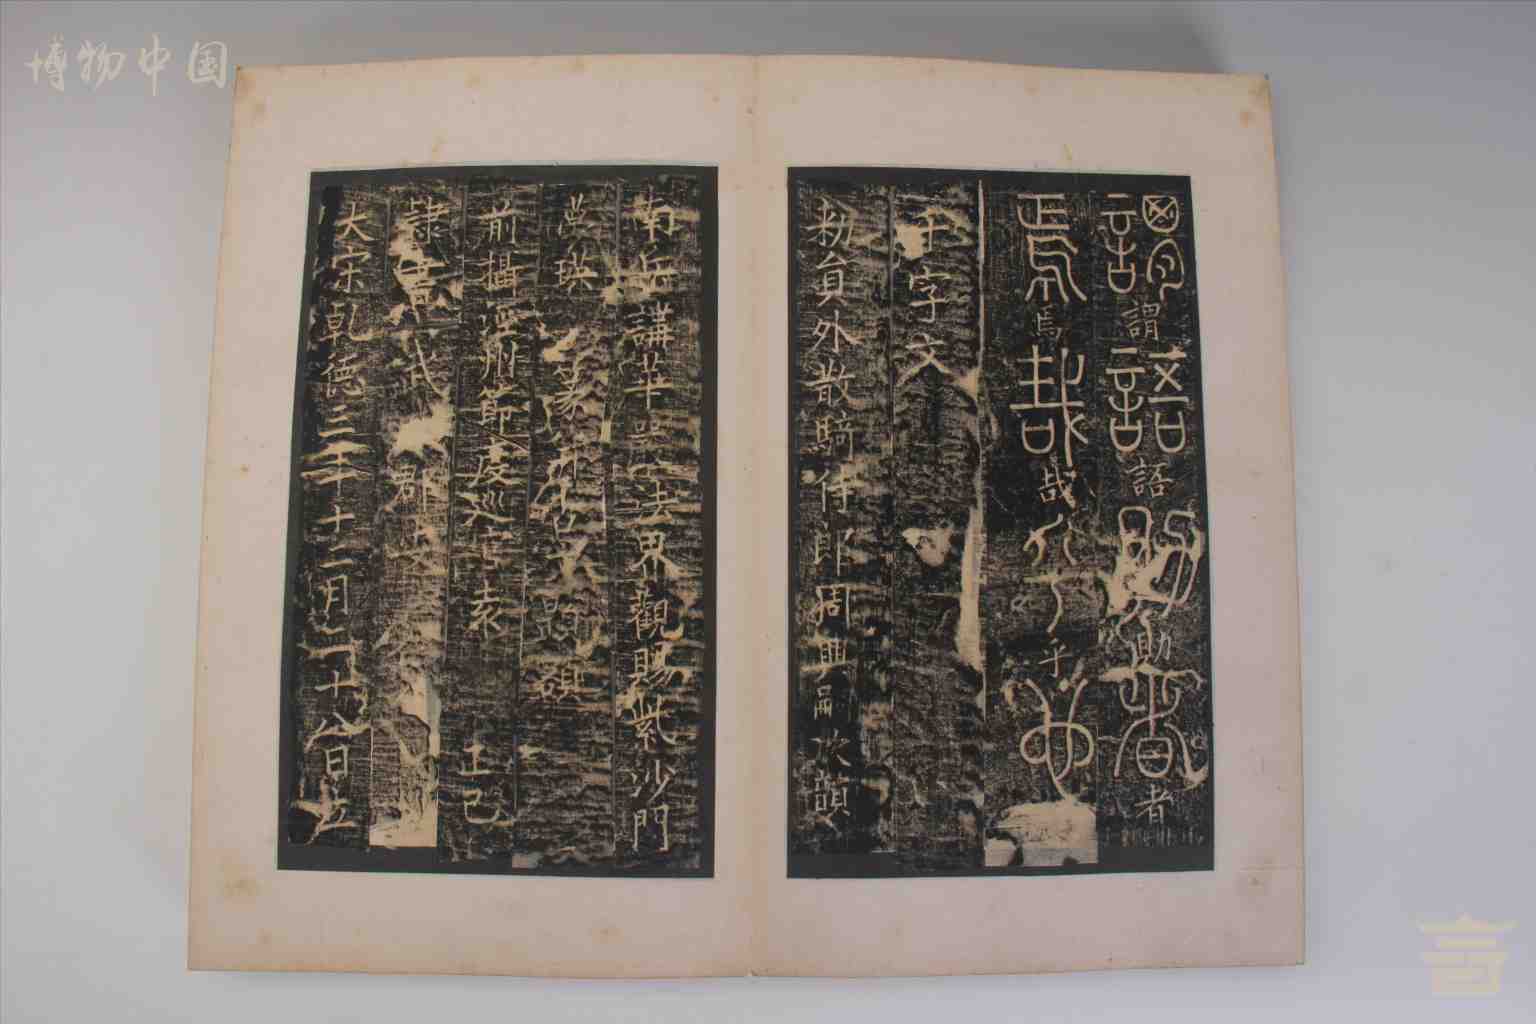 博物中国
謂謂語語助助者者
焉焉哉哉乎乎也
千字文
敕員外散騎侍郎周興嗣次韻
南岳講華嚴法界觀賜紫沙門
夢瑛篆并古文題額
前攝涇州節度巡官袁正己
隸書 武 郡
大宋乾德三年十二月二十八日立